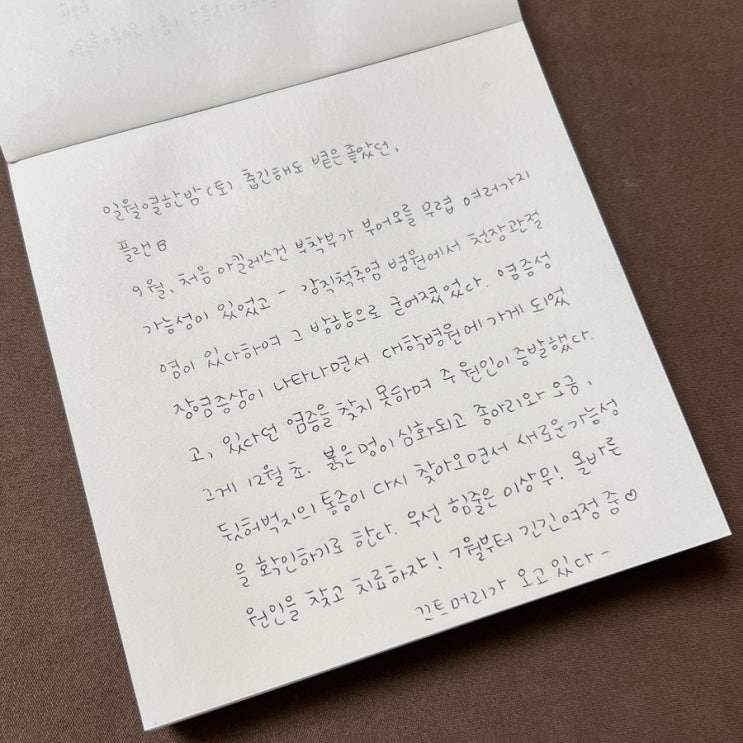 일월열한밤 (토) 춥긴해도 볕은좋았던,
플랜 B
9월, 처음 아킬레스건 부착부가 부어오를 무렵 여러가지
가능성이 있었고 - 강직척추염 병원에서 천장관절
염이 있다하여 그 방향으로 굳어졌었다. 염증성
장염증상이 나타나면서 대학병원에 가게 되었
고, 있다던 염증을 찾지 못하며 주 원인이 증발했다.
그게 12월 초. 붉은 멍이 심화되고 종아리와 오금,
뒷허벅지의 통증이 다시 찾아오면서 새로운가능성
을 확인하기로 한다. 우선 힘줄은 이상 무! 올바른
원인을 찾고 치료하자! 7월부터 긴긴여정 중♡
끄트머리가 오고 있다 -